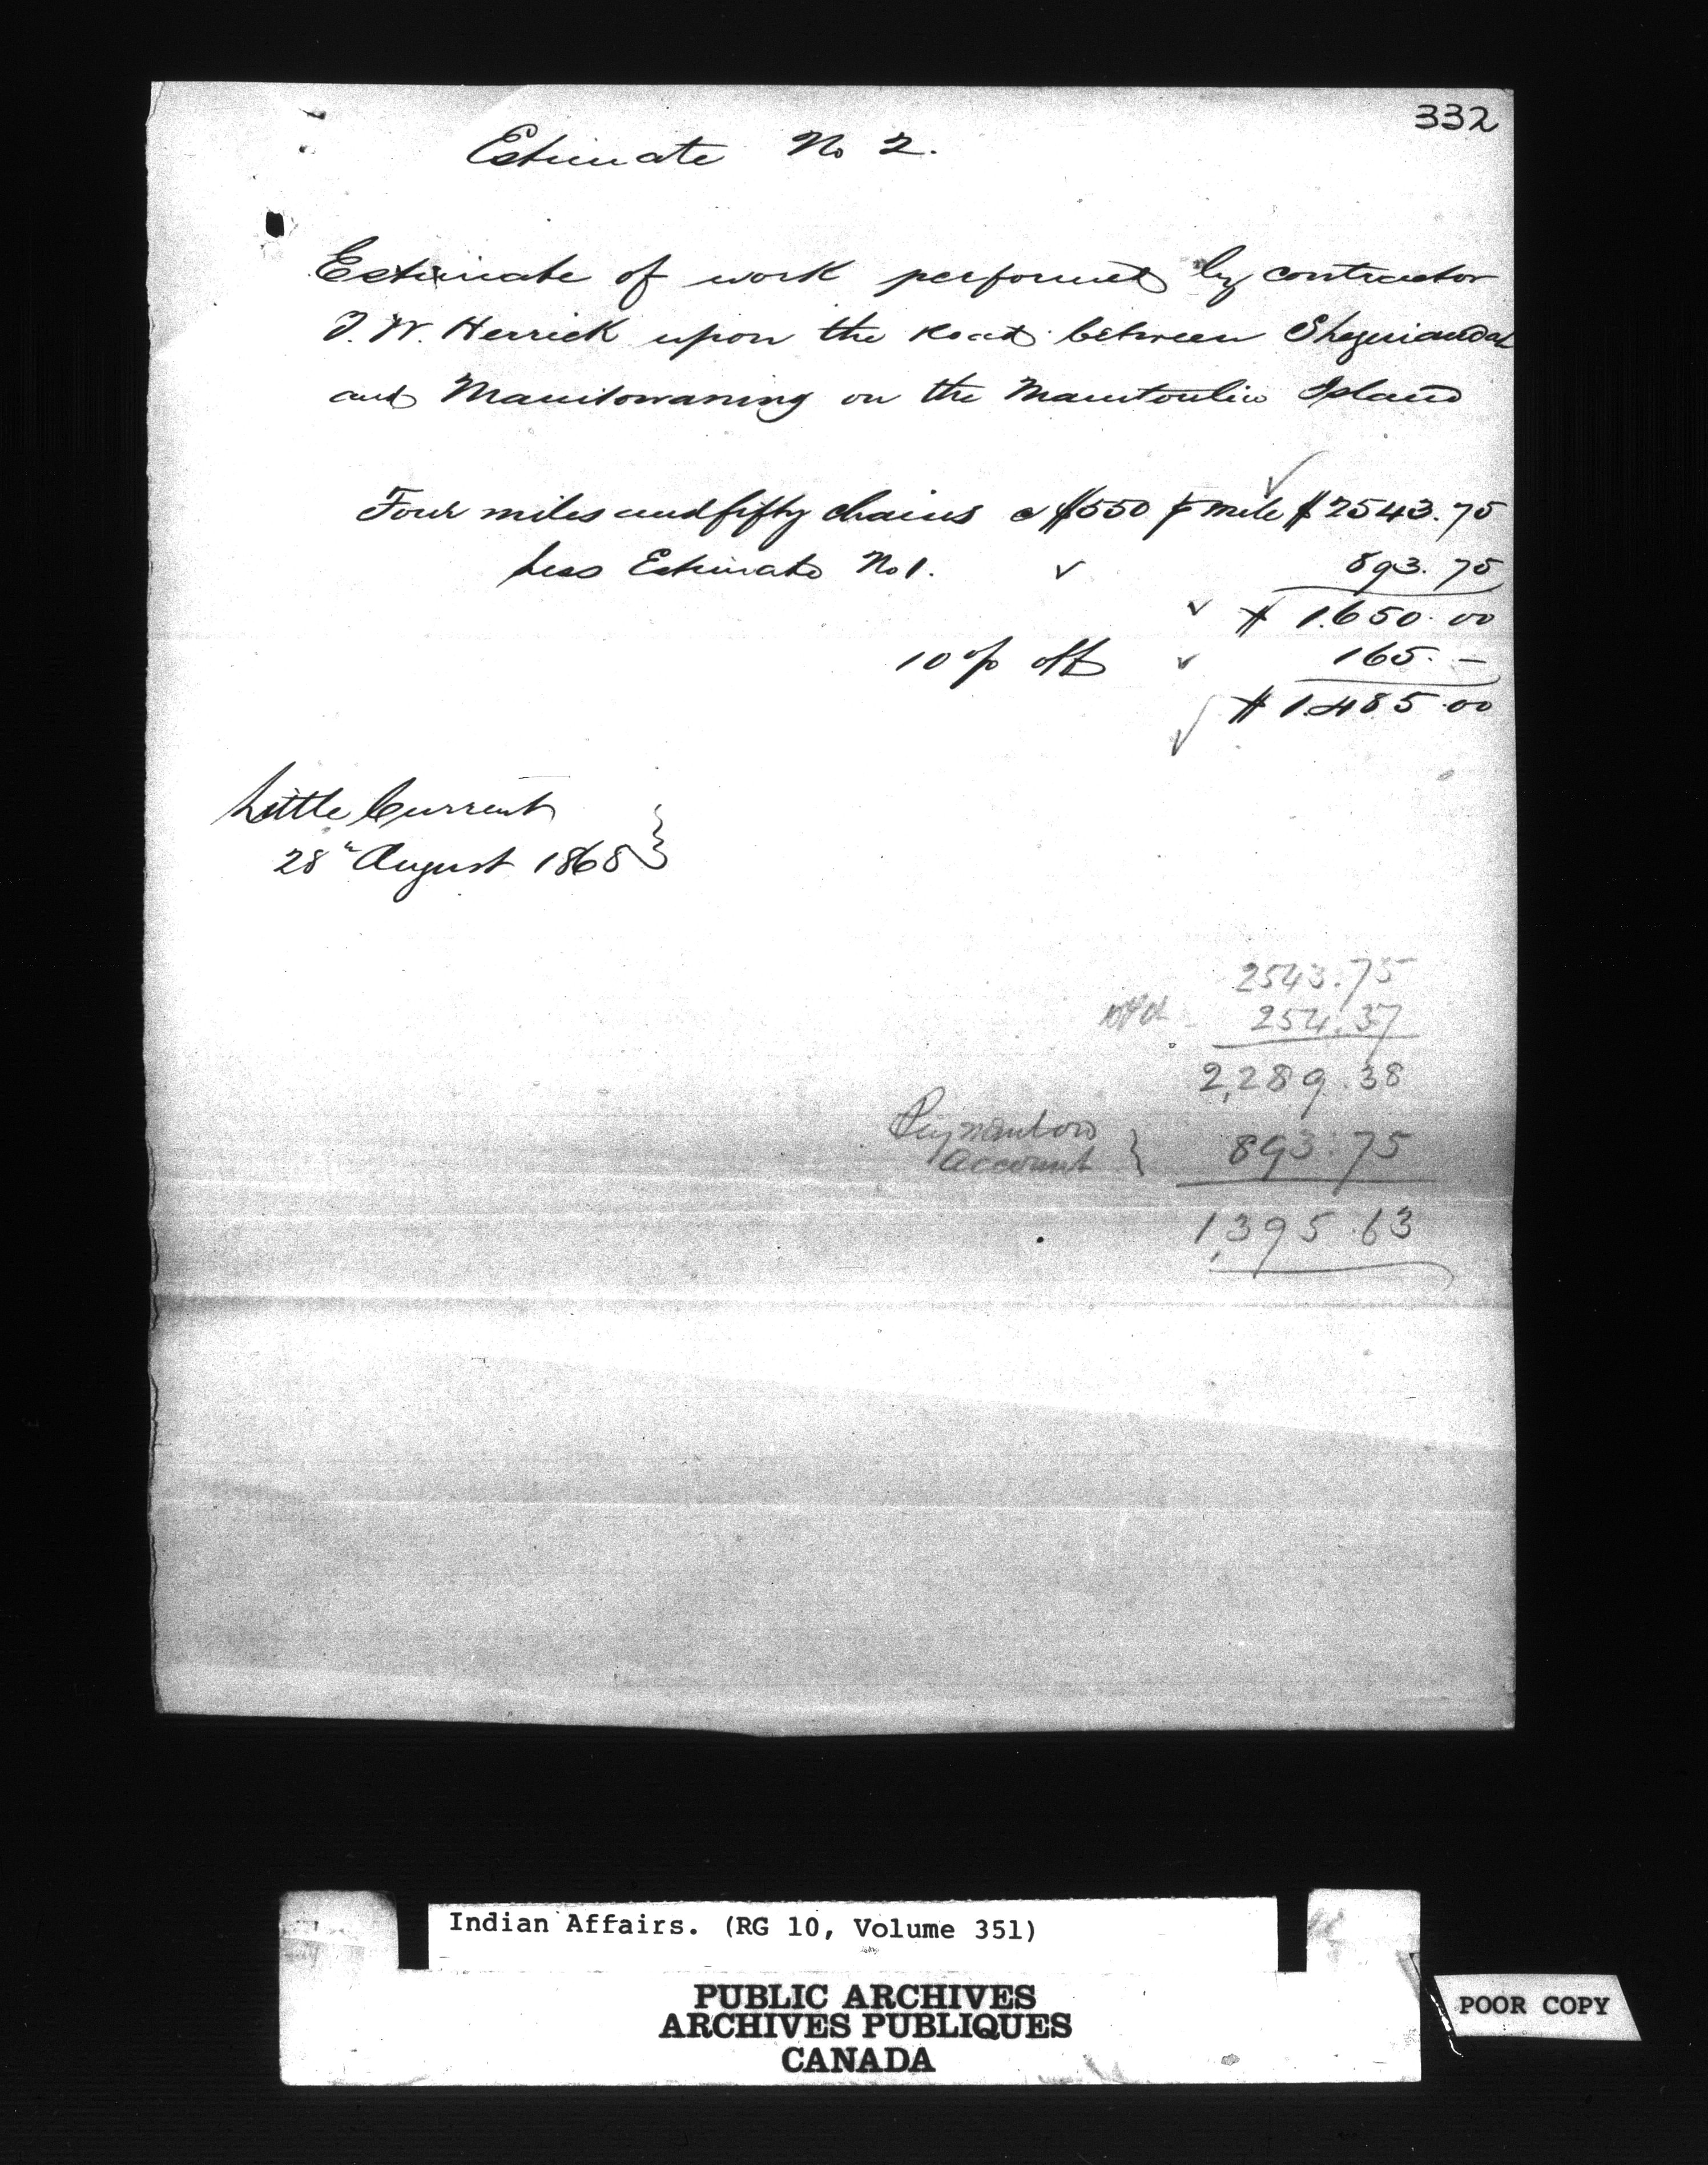 332
Estimate No 2.
Estimate of work performed by contractor
T. W. Herrick upon the Road between Sheguiandah
and Manitowaning on the Manitoulin Island
Four miles and fifty chains @ $550 p mile $2543.75
Less Estimate No 1. 893.75
$ 1.650.00
10 % off 165. –
$ 1.485.00
Little Current
28th August 1868
2543.75
254.37
2,289.38
Payment on
account } 893.75
1,395.63
Indian Affairs. (RG 10, Volume 351)
PUBLIC ARCHIVES
ARCHIVES PUBLIQUES
CANADA
POOR COPY